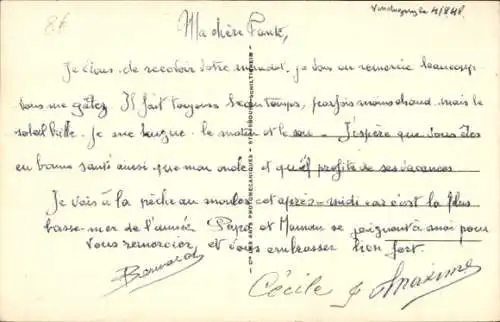 8€
Ma chère Tante,
Je viens de recevoir votre mandat. je vous en remercie beaucoup
vous me gâtez Il fait toujours beau temps, parfois moins chaud. mais le
soleil brille. je me baigne le matin et le soir. J'espère que vous êtes
en bonne santé ainsi que mon oncle et qu'il profite de ses vacances
Je vais à la pêche au moules cet après-midi car c'est la plus
basse mer de l'année Papa et Maman se joignent à moi pour
vous remercier et vous embrasser bien fort.
Bernard
Cécile & Maxime